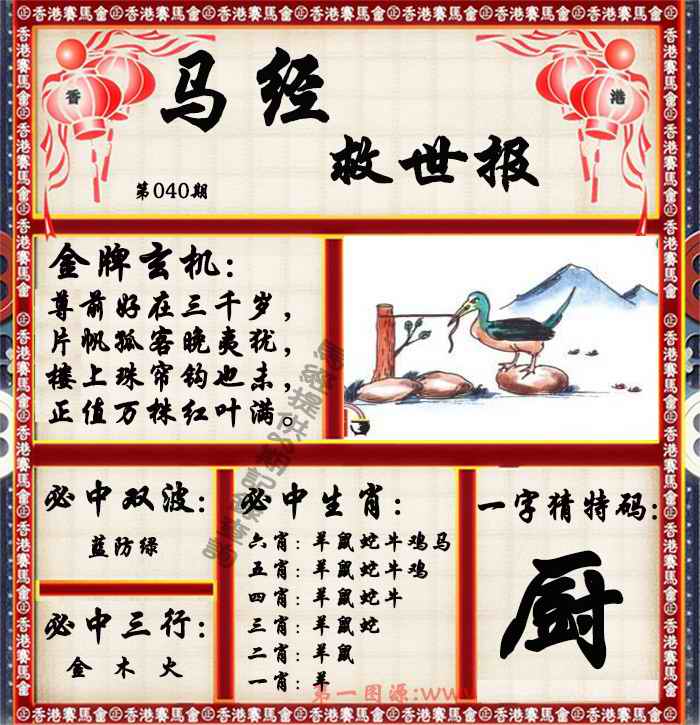 香港賽馬會
香
港
马经
救世报
第040期
金牌玄机:
尊前好在三千岁,
片帆孤客晚夷犹,
楼上珠帘钩也未,
正值万株红叶满。
必中双波:
蓝防绿
必中三行:
金 木 火
必中生肖:
六肖:羊鼠蛇牛鸡马
五肖:羊鼠蛇牛鸡
四肖:羊鼠蛇牛
三肖:羊鼠蛇
二肖:羊鼠
一肖:羊
一字猜特码:
厨
第一图源:www